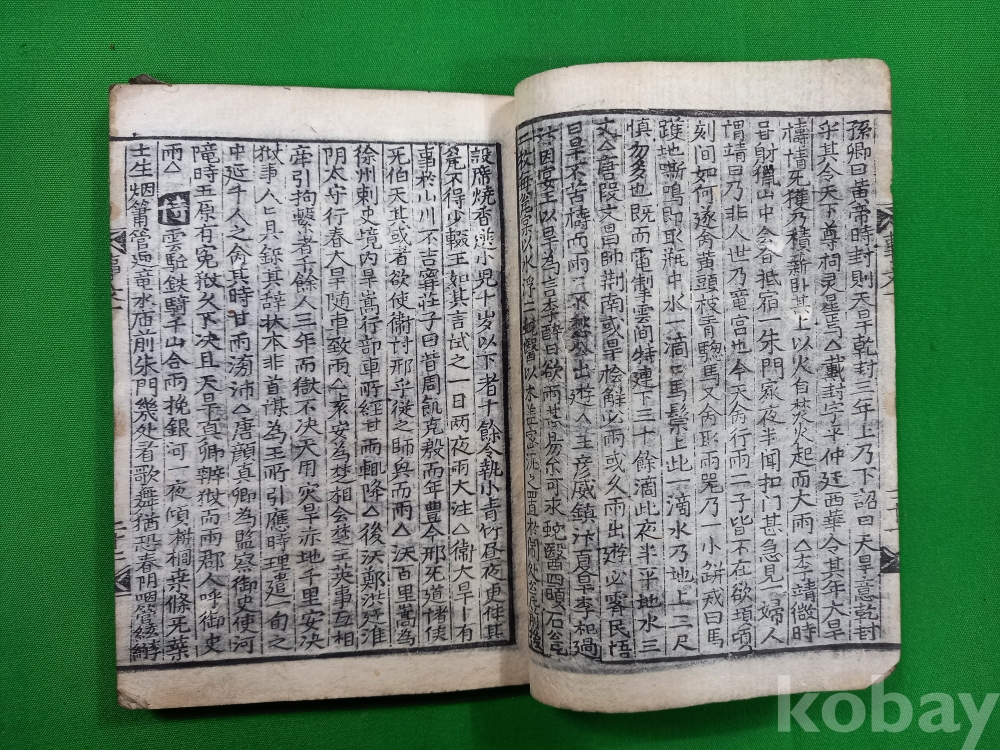 孫卿曰黃帝時封則天旱乾封三年上乃下詔曰天旱意乾封
乎其令天下尊祠灵星焉△戴封字平仲迁西華令其年大旱
禱請死獲乃積薪卧其上以火自焚火起而大雨△李靖微時
甞射獵山中會暮抵宿一朱門家夜半聞扣門甚急見一婦人
謂靖曰乃非人世乃竜宮也今天命行雨二子皆不在欲頃
刻間如何遂命黃頭被青驄馬又命取雨器乃一小缾戒曰馬
跑地嘶鳴即取甁中水一滴馬鬃上此一滴水乃地上二尺
慎勿多也既而電掣雲間特連下三十餘滴此夜半平地水三
丈△唐段文昌帥荆南或旱禬解必雨或久雨出遊必霽民語
曰旱不苦禱而雨雨不愁公出遊△王彦威鎮汴夏旱李杞過
汴因宴王以旱為言李醉曰欲雨甚易尓可求蛇醫四頭石瓮
二枚每瓮以水浮二蛇醫以木蓋密泥之置於閙処瓮前後
設席燒香選小児十岁以下者十餘令執小青竹昼夜更作其
瓮不得少輟王如其言試之一日两夜雨大注△衛大旱有
事於山川不吉寗莊子曰昔周飢克殷而年豊今邢死道诸侯
死伯天其或者欲使衛討邢乎従之師興而雨△沃百里嵩為
徐州刺史境内旱嵩行部車所經甘雨輒降△後沃鄭弘迁淮
阴太守行春大旱随車致雨△安為楚相会楚王英事互相
牽引拘繫者千餘人三年而獄不决天用灾旱赤地千里安决
狱事人人具録其辞状本非首謀為王所引應時理遣一旬之
中延千人之命其時甘雨滂沛△唐顔真卿為監察御史使河
隴時五原有寃狱久不决且天旱真卿辨狱而雨郡人呼御史
雨△詩雲駈鉄騎千山合雨挽銀河一夜傾桐葉條死葉
土生烟簫管遍竜水庙前朱門幾处耆歌舞猶恐春阴咽管絃